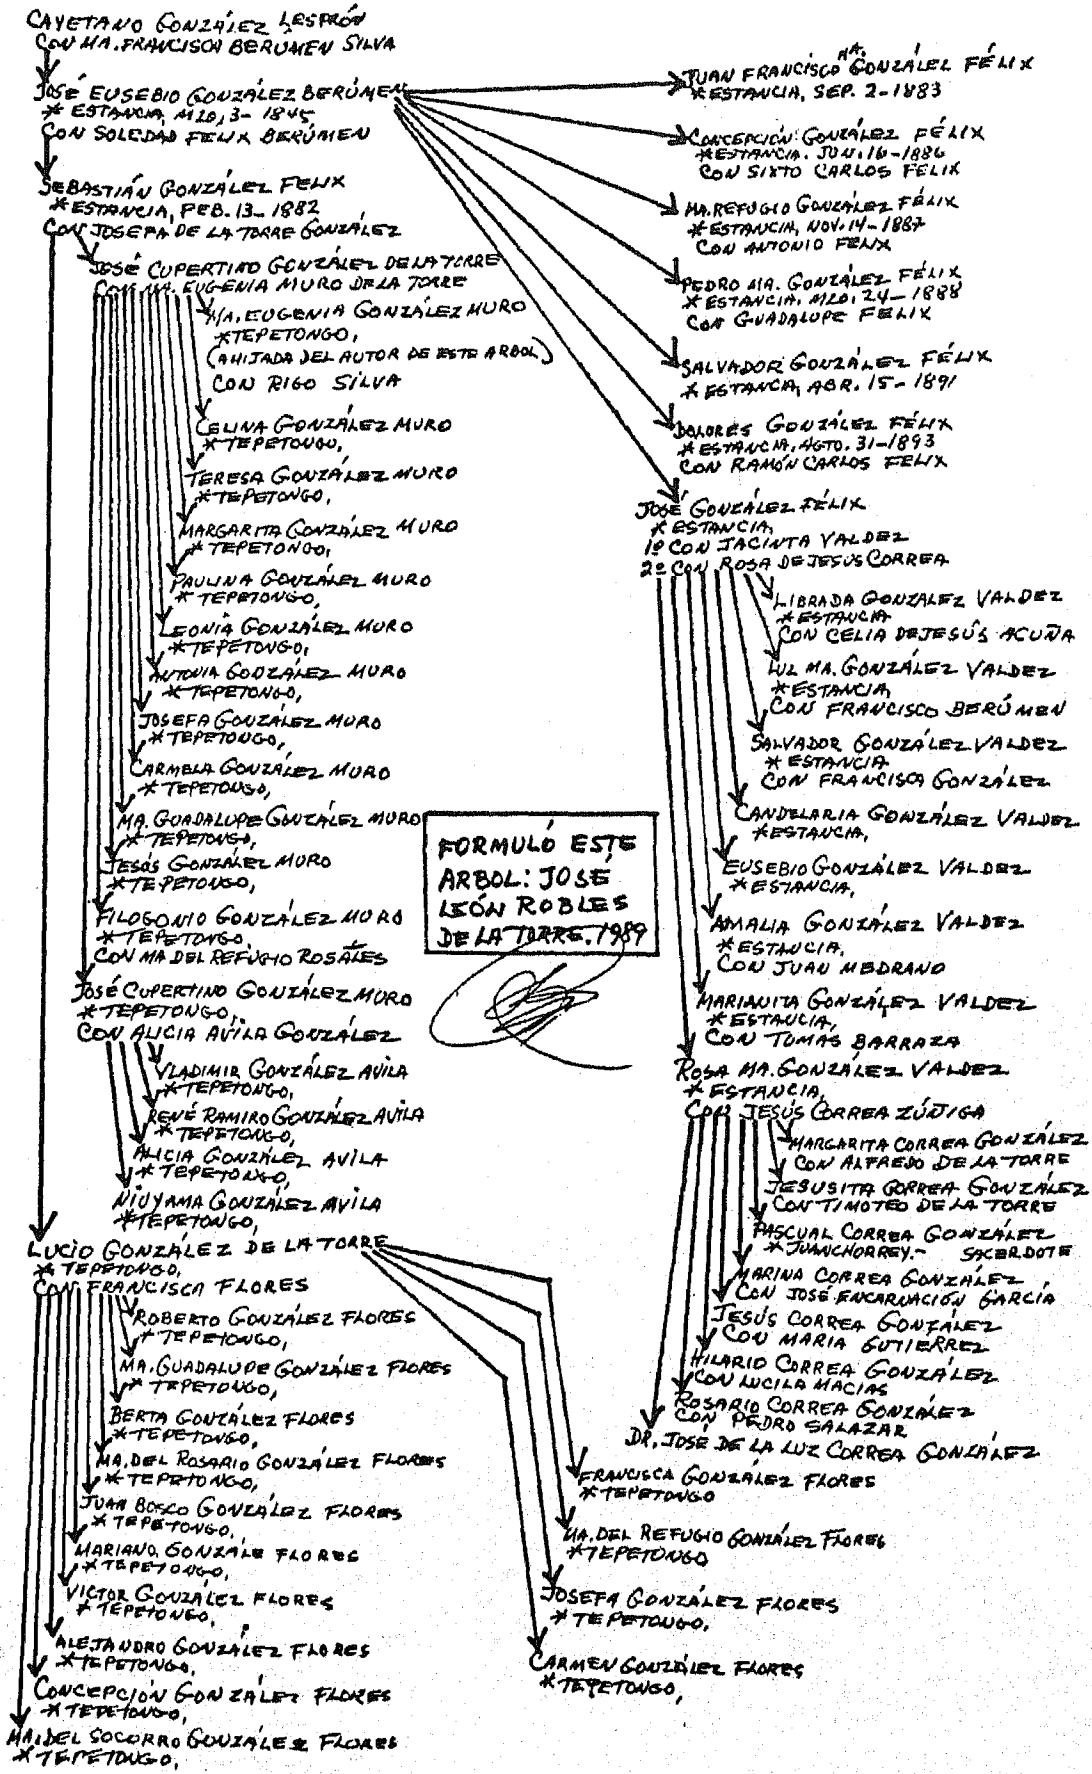 CAYETANO GONZÁLEZ LESPRÓN
CON MA. FRANCISCA BERUMEN SILVA
JOSÉ EUSEBIO GONZÁLEZ BERÚMEN
* ESTANCIA, MZO, 3- 1845
CON SOLEDAD FELIX BERÚMEN
SEBASTIÁN GONZÁLEZ FELIX
* ESTANCIA, FEB. 13- 1882
CON JOSEFA DE LA TORRE GONZÁLEZ
JOSÉ CUPERTINO GONZÁLEZ DE LA TORRE
CON MA. EUGENIA MURO DE LA TORRE
MA. EUGENIA GONZÁLEZ MURO
* TEPETONGO,
(AHIJADA DEL AUTOR DE ESTE ARBOL)
CON RIGO SILVA
CELINA GONZÁLEZ MURO
* TEPETONGO,
TERESA GONZÁLEZ MURO
* TEPETONGO,
MARGARITA GONZÁLEZ MURO
* TEPETONGO,
PAULINA GONZÁLEZ MURO
* TEPETONGO,
LEONIA GONZÁLEZ MURO
* TEPETONGO,
ANTONIA GONZÁLEZ MURO
* TEPETONGO,
JOSEFA GONZÁLEZ MURO
* TEPETONGO,
CARMELA GONZÁLEZ MURO
* TEPETONGO,
MA. GUADALUPE GONZÁLEZ MURO
* TEPETONGO,
JESÚS GONZÁLEZ MURO
* TEPETONGO,
FILOGONIO GONZÁLEZ MURO
* TEPETONGO,
CON MA DEL REFUGIO ROSALES
JOSÉ CUPERTINO GONZÁLEZ MURO
* TEPETONGO,
CON ALICIA AVILA GONZÁLEZ
VLADIMIR GONZÁLEZ AVILA
* TEPETONGO,
RENÉ RAMIRO GONZÁLEZ AVILA
* TEPETONGO,
ALICIA GONZÁLEZ AVILA
* TEPETONGO,
NIUYAMA GONZÁLEZ AVILA
* TEPETONGO,
LUCIO GONZÁLEZ DE LA TORRE
* TEPETONGO,
CON FRANCISCA FLORES
ROBERTO GONZÁLEZ FLORES
* TEPETONGO,
MA. GUADALUPE GONZÁLEZ FLORES
* TEPETONGO,
BERTA GONZÁLEZ FLORES
* TEPETONGO,
MA. DEL ROSARIO GONZÁLEZ FLORES
* TEPETONGO,
JUAN BOSCO GONZÁLEZ FLORES
* TEPETONGO,
MARIANO GONZÁLE FLORES
* TEPETONGO,
VICTOR GONZÁLEZ FLORES
* TEPETONGO,
ALEJANDRO GONZÁLEZ FLORES
* TEPETONGO,
CONCEPCIÓN GONZÁLEZ FLORES
* TEPETONGO,
MA. DEL SOCORRO GONZÁLEZ FLORES
* TEPETONGO,
FORMULÓ ESTE
ARBOL: JOSÉ
LEÓN ROBLES
DE LA TORRE. 1989
JUAN FRANCISCO MA. GONZÁLEZ FÉLIX
* ESTANCIA, SEP. 2-1883
CONCEPCIÓN GONZÁLEZ FÉLIX
* ESTANCIA. JUN. 16-1886
CON SIXTO CARLOS FÉLIX
MA. REFUGIO GONZÁLEZ FÉLIX
* ESTANCIA, NOV. 14-1887
CON ANTONIO FELIX
PEDRO MA. GONZÁLEZ FÉLIX
* ESTANCIA, MZO. 24-1888
CON GUADALUPE FELIX
SALVADOR GONZÁLEZ FÉLIX
* ESTANCIA, ABR. 15-1891
DOLORES GONZÁLEZ FÉLIX
* ESTANCIA. AGTO. 31-1893
CON RAMÓN CARLOS FELIX
JOSÉ GONZÁLEZ FÉLIX
* ESTANCIA,
1º CON JACINTA VALDEZ
2º CON ROSA DE JESUS CORREA
LIBRADA GONZALEZ VALDEZ
* ESTANCIA
CON CELIA DE JESÚS ACUÑA
LUZ MA. GONZÁLEZ VALDEZ
* ESTANCIA,
CON FRANCISCO BERÚMEN
SALVADOR GONZÁLEZ VALDEZ
* ESTANCIA
CON FRANCISCA GONZÁLEZ
CANDELARIA GONZÁLEZ VALDEZ
* ESTANCIA,
EUSEBIO GONZÁLEZ VALDEZ
* ESTANCIA,
AMALIA GONZÁLEZ VALDEZ
* ESTANCIA.
CON JUAN MEDRANO
MARIANITA GONZÁLEZ VALDEZ
* ESTANCIA,
CON TOMAS BARRAZA
ROSA MA. GONZÁLEZ VALDEZ
* ESTANCIA,
CON JESÚS CORREA ZÚÑIGA
MARGARITA CORREA GONZÁLEZ
CON ALFREDO DE LA TORRE
JESUSITA CORREA GONZÁLEZ
CON TIMOTEO DE LA TORRE
PASCUAL CORREA GONZÁLEZ
* JUANCHORREY.- SACERDOTE
MARINA CORREA GONZÁLEZ
CON JOSÉ ENCARNACIÓN GARCÍA
JESÚS CORREA GONZÁLEZ
CON MARIA GUTIERREZ
HILARIO CORREA GONZÁLEZ
CON LUCILA MACIAS
ROSARIO CORREA GONZÁLEZ
CON PEDRO SALAZAR
DR. JOSÉ DE LA LUZ CORREA GONZÁLEZ
FRANCISCA GONZÁLEZ FLORES
* TEPETONGO
MA. DEL REFUGIO GONZÁLEZ FLORES
* TEPETONGO
JOSEFA GONZÁLEZ FLORES
* TEPETONGO,
CARMEN GONZÁLEZ FLORES
* TEPETONGO,